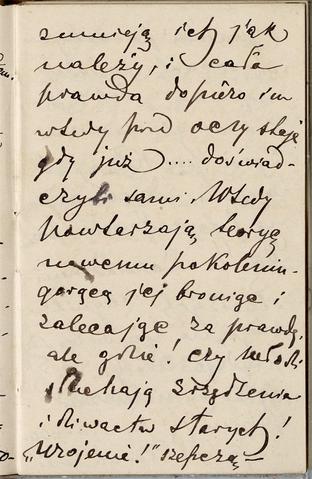 umieją ich jak
należy, i cała
prawda dopiero im
wtedy pod oczy staje
gdy już .... doświad-
czyli sami. Wtedy
powtarzają teoryę
nowemu pokoleniu -
gorąco jej broniąc i
zalecając za prawdę,
ale gdzie! czy młodzi
słuchają zrzędzenia
i dziwactw starych!
„Urojenie!" szepczą -